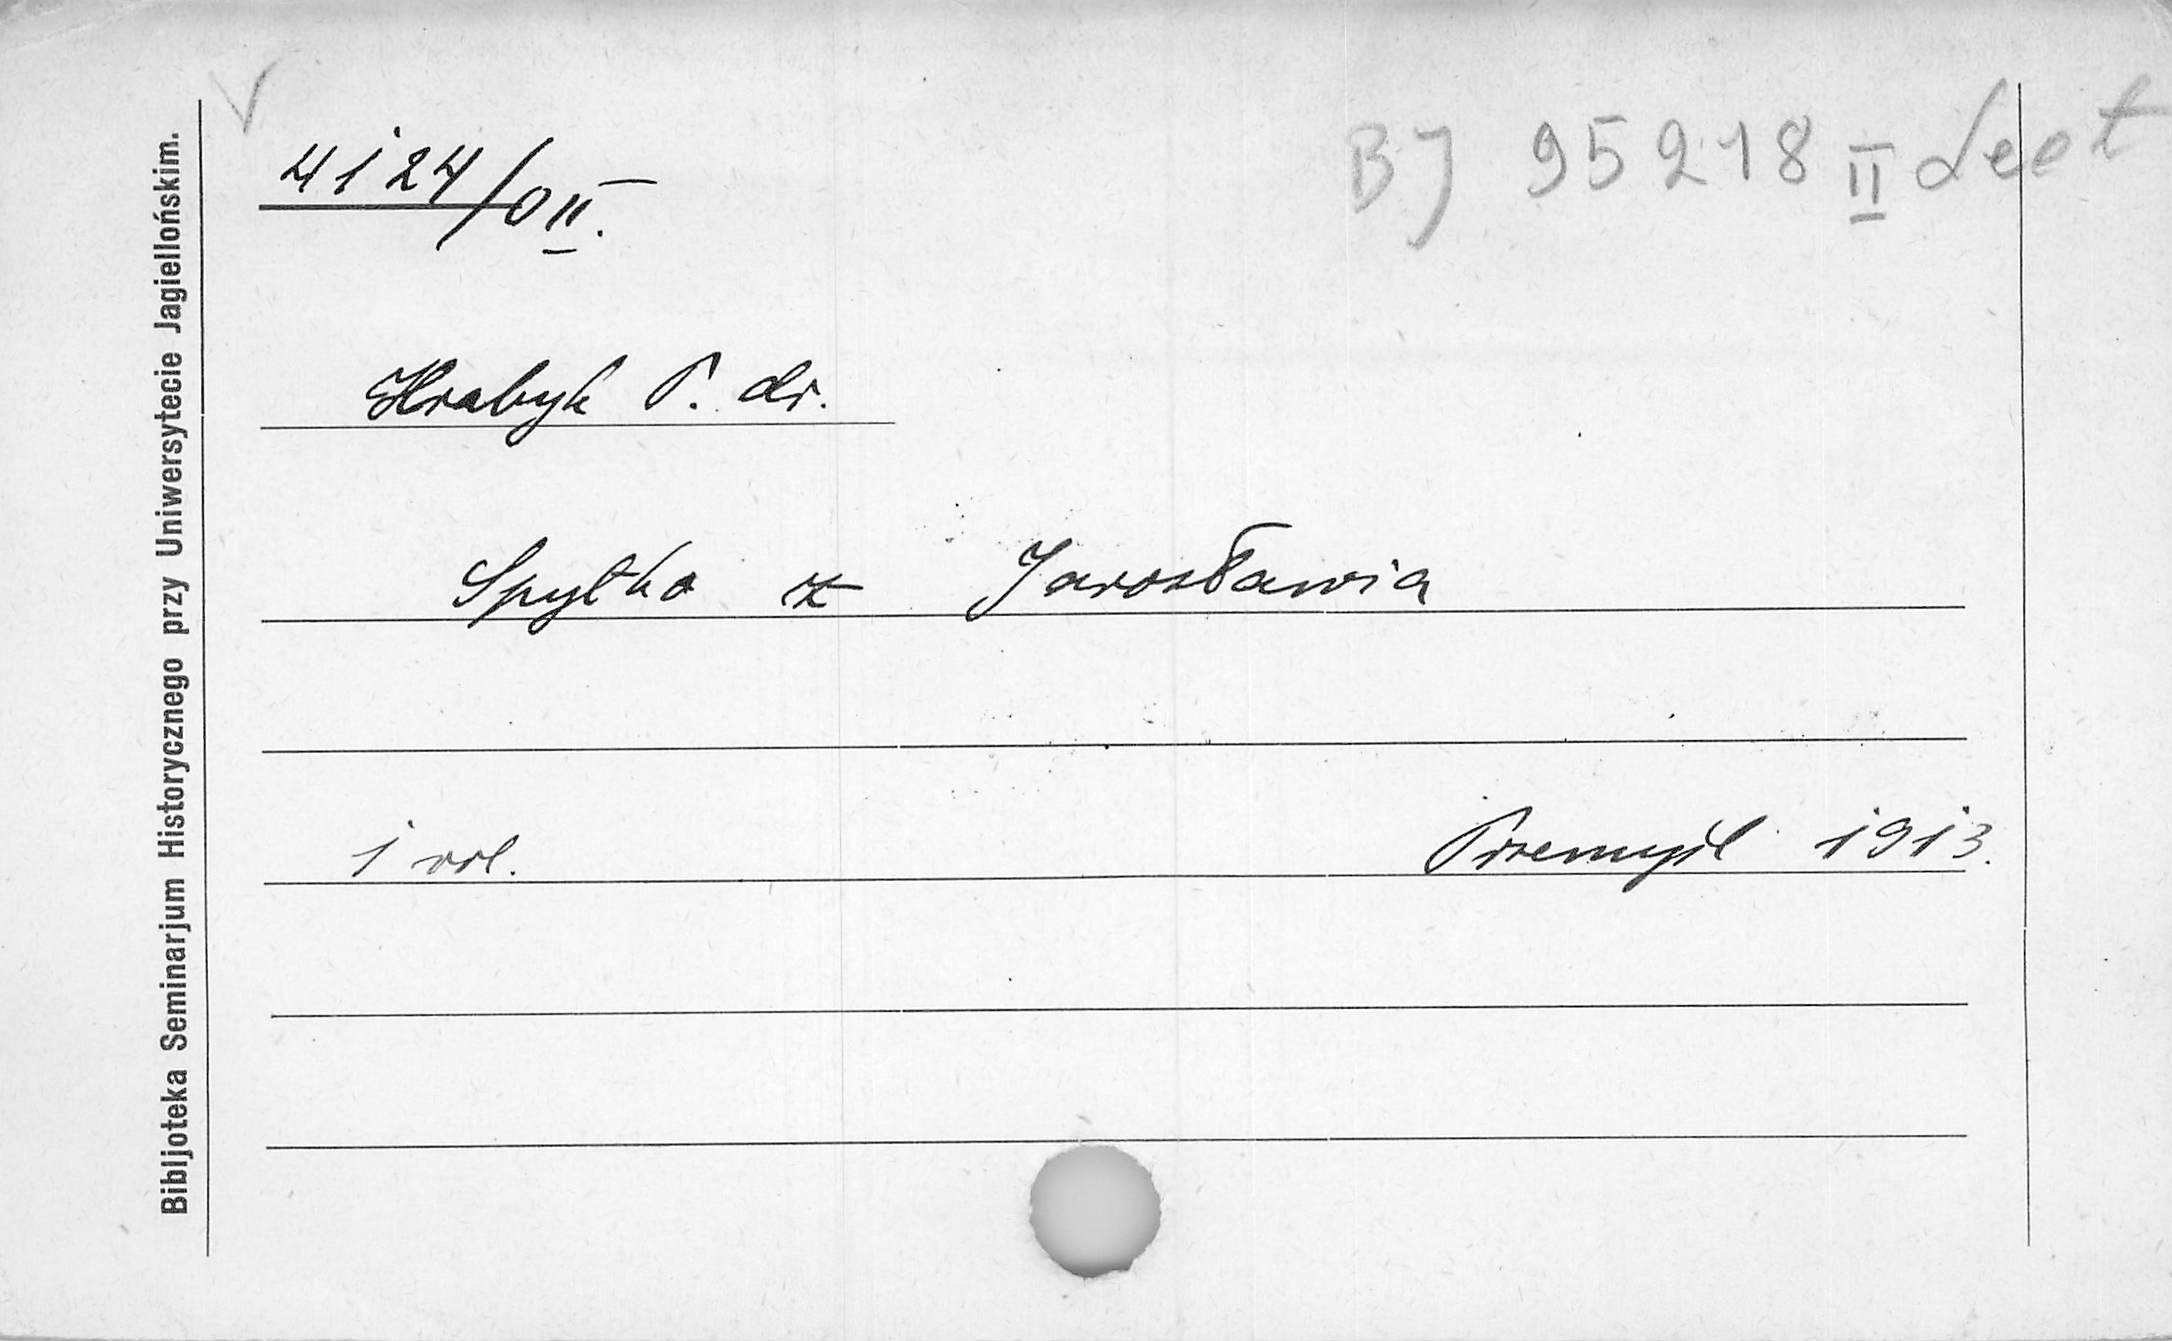 4124/0 II.
BJ 95218 II Lect
Hrabyk P. dr.
Spytko z Jarosławia
1 vol.
Przemyśl 1913.
Bibljoteka Seminarjum Historycznego przy Uniwersytecie Jagiellońskim.